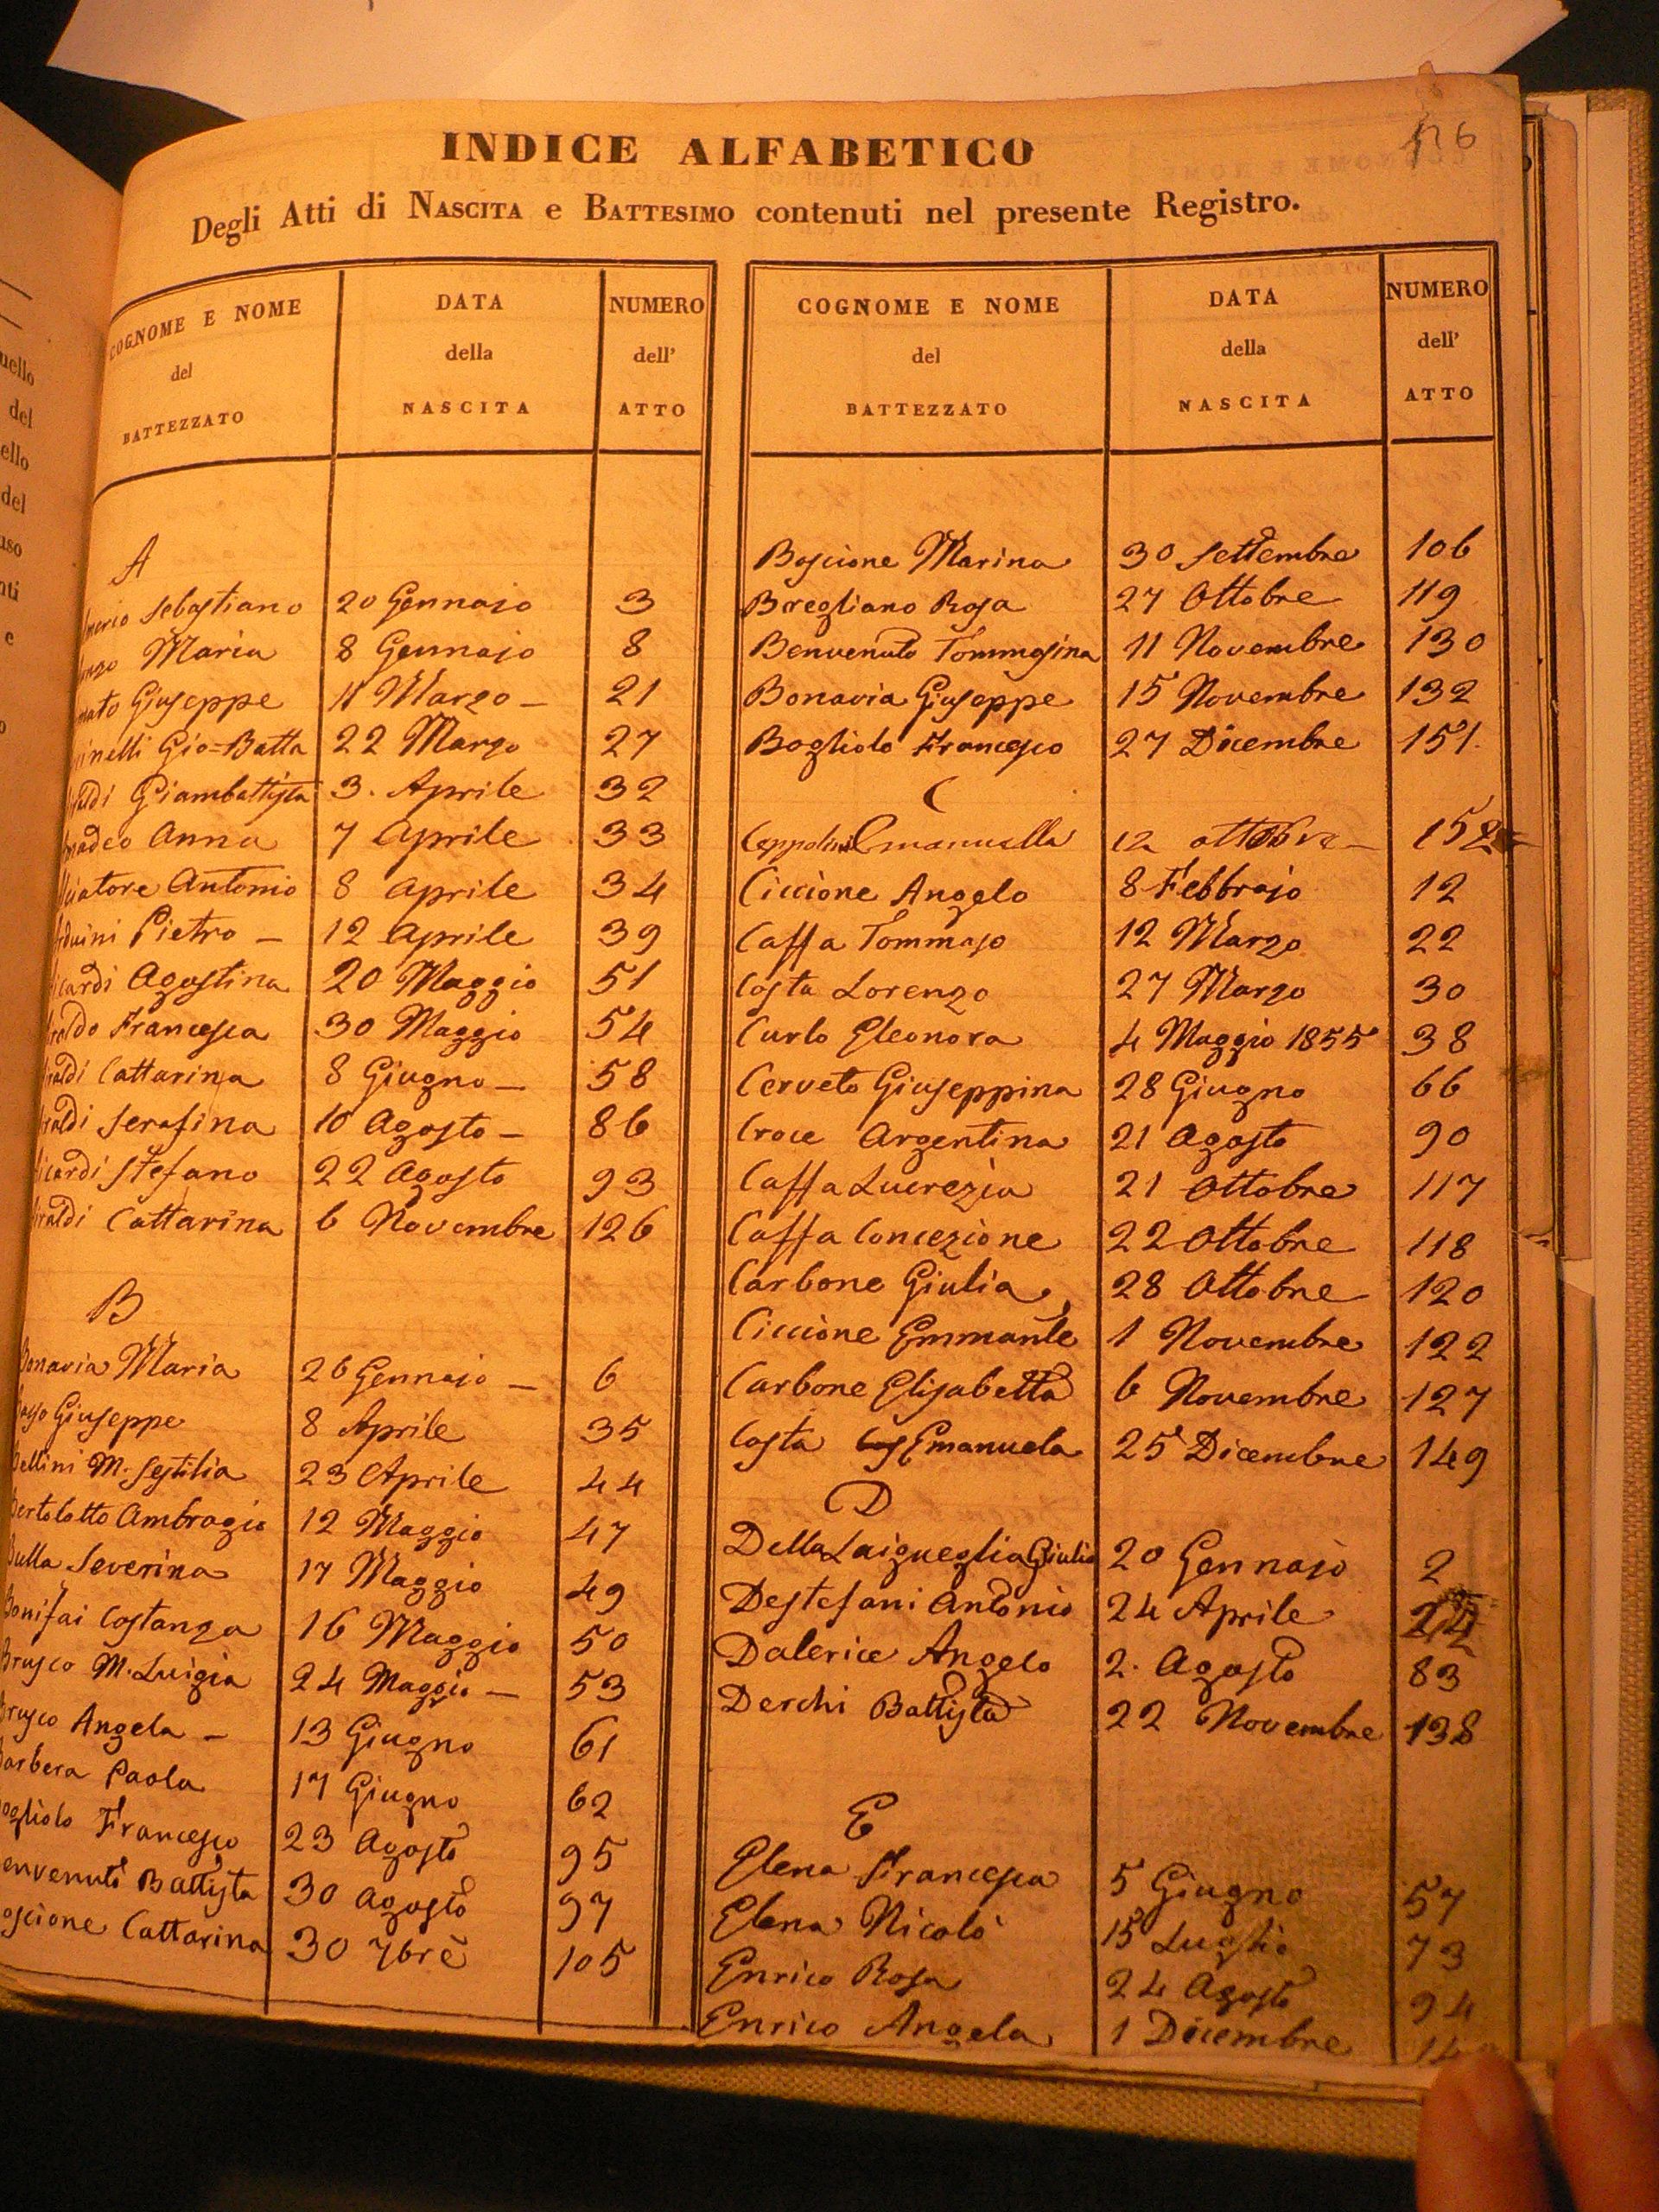 176
INDICE ALFABETICO
Degli Atti di NASCITA e BATTESIMO contenuti nel presente Registro.
COGNOME E NOME
del
BATTEZZATO
DATA
della
NASCITA
NUMERO
dell'
ATTO
A
Sebastiano 20 Gennajo 3
Maria 8 Gennajo 8
Giuseppe 11 Marzo - 21
inelli Gio=Batta 22 Marzo 27
aldi Giambattista 3. Aprile 32
adeo Anna 7 Aprile 33
iatore Antonio 8 Aprile 34
duini Pietro - 12 Aprile 39
icardi Agostina 20 Maggio 51
raldo Francesca 30 Maggio 54
raldi Cattarina 8 Giugno - 58
raldi Serafina 10 Agosto - 86
icardi Stefano 22 Agosto 93
iraldi Cattarina 6 Novembre 126
B
Bonavia Maria 26 Gennajo - 6
Giuseppe 8 Aprile 35
Bellini M. Sestilia 23 Aprile 44
Bertolotto Ambrogio 12 Maggio 47
Bulla Severina 17 Maggio 49
Bonifai Costanza 16 Maggio 50
Brusco M. Luigia 24 Maggio - 53
Brusco Angela - 13 Giugno 61
Barbera Paola 17 Giugno 62
ogliolo Francesco 23 Agosto 95
envenuto Battista 30 Agosto 97
oscione Cattarina 30 7bre 105
COGNOME E NOME
del
BATTEZZATO
DATA
della
NASCITA
NUMERO
dell'
ATTO
Boscione Marina 30 Settembre 106
Boregliano Rosa 27 Ottobre 119
Benvenuto Tommasina 11 Novembre 130
Bonavia Giuseppe 15 Novembre 132
Bogliolo Francesco 27 Dicembre 151.
C
Emanuella 12 ottobre - 152
Ciccione Angelo 8 Febbrajo 12
Caffa Tommaso 12 Marzo 22
Costa Lorenzo 27 Marzo 30
Curlo Eleonora 4 Maggio 1855 38
Cerveto Giuseppina 28 Giugno 66
Croce Argentina 21 Agosto 90
Caffa Lucrezia 21 Ottobre 117
Caffa Concezione 22 Ottobre 118
Carbone Giulia 28 Ottobre 120
Ciccione Emmanle 1 Novembre 122
Carbone Elisabetta 6 Novembre 127
Costa Emanuela 25 Dicembre 149
D
Della Laigueglia Giulio 20 Gennajo 2
Destefani Antonio 24 Aprile
Dalerice Angelo 2. Agosto 83
Derchi Battista 22 Novembre 138
E
Elena Francesca 5 Giugno 57
Elena Nicolò 15 Luglio 73
Enrico Rosa 24 Agosto 94
Enrico Angela 1 Dicembre